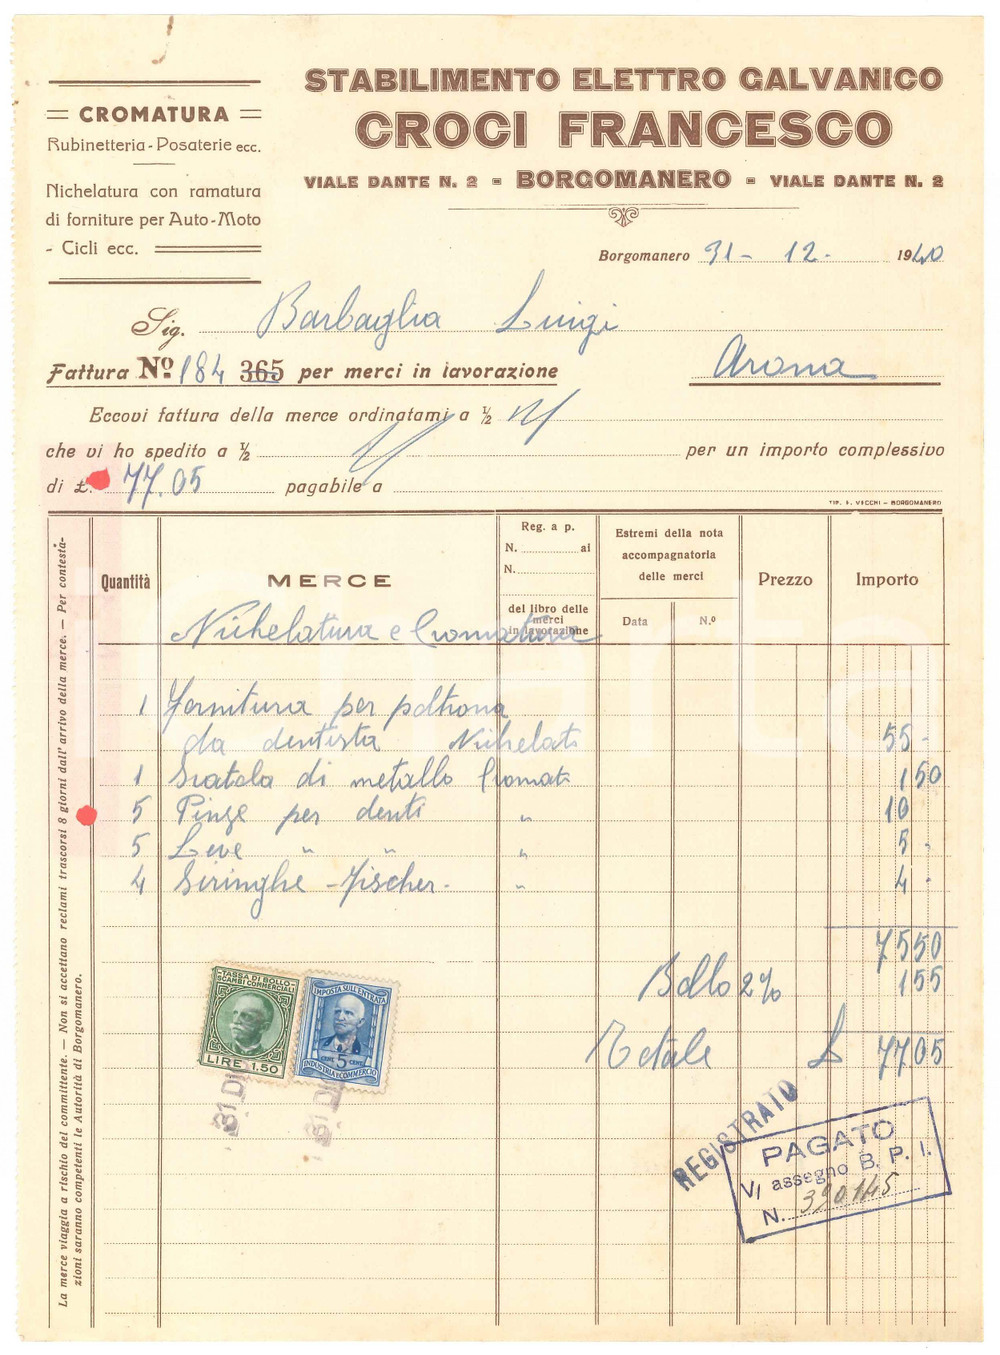 STABILIMENTO ELETTRO GALVANICO
CROCI FRANCESCO
VIALE DANTE N. 2 - BORGOMANERO - VIALE DANTE N. 2
CROMATURA
Rubinetteria - Posaterie ecc.
Nichelatura con ramatura
di forniture per Auto-Moto
- Cicli ecc.
Borgomanero 31 - 12 - 1940
Sig. Barbaglia Luigi
Fattura Nº 184 365 per merci in lavorazione Arona
Eccovi fattura della merce ordinatami a ½
che vi ho spedito a ½ per un importo complessivo
di £. 77.05 pagabile a
TIP. E. VECCHI - BORGOMANERO
Quantità
MERCE
Reg. a p.
N. ai
N.
del libro delle
merci
in lavorazione
Estremi della nota
accompagnatoria
delle merci
Data N.º
Prezzo
Importo
Nichelatura e Cromatura
1 Fornitura per poltrona
da dentista Nichelat. 55 -
1 Scatola di metallo Cromat. 1 50
5 Pinze per denti " 10
5 Leve " " " 5 -
4 Siringhe - Fischer - " 4 -
75 50
Bollo 2% 1 55
Totale £ 77 05
TASSA DI BOLLO
SCAMBI COMMERCIALI
LIRE 1.50
IMPOSTA SULL'ENTRATA
CENT. 5 CENT.
INDUSTRIA E COMMERCIO
31 DI
31 DI
REGISTRATO
PAGATO
V/ assegno B. P. I.
N. 390145
La merce viaggia a rischio del committente. — Non si accettano reclami trascorsi 8 giorni dall'arrivo della merce. — Per contesta-
zioni saranno competenti le Autorità di Borgomanero.